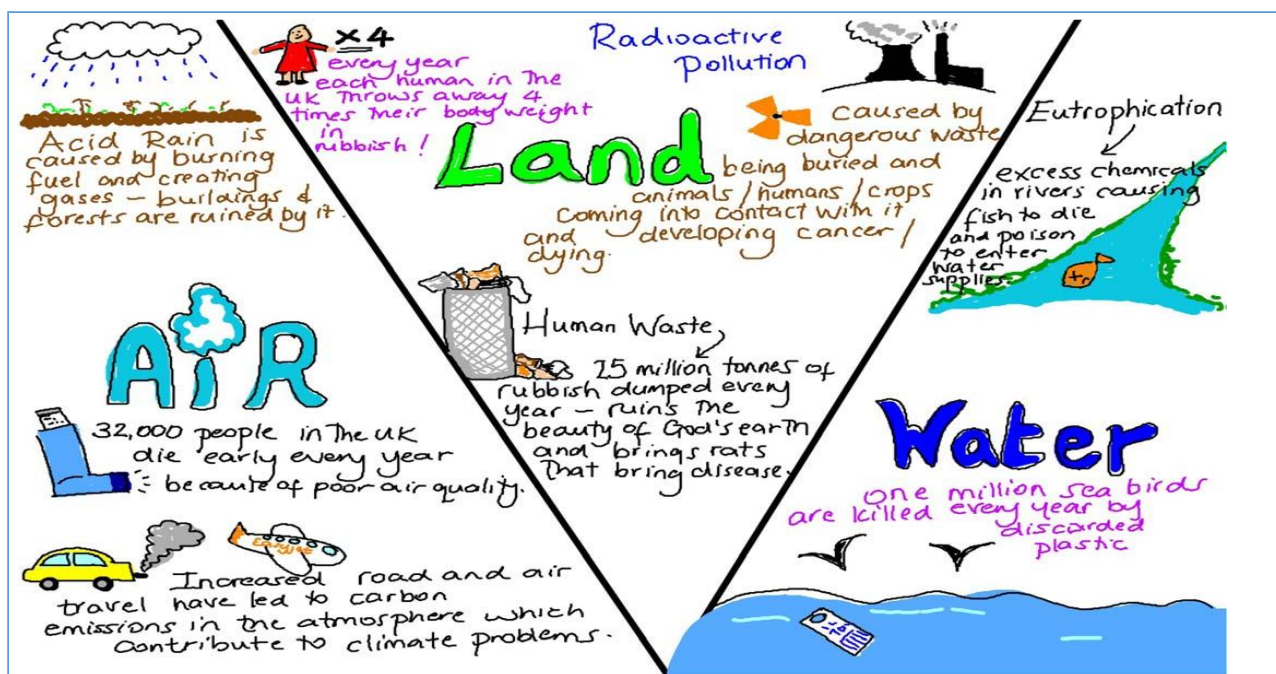 Acid Rain is
caused by burning
fuel and creating
gases – buildings &
forests are ruined by it.
AIR
32,000 people in the UK
die early every year
because of poor air quality.
easyJet
Increased road and air
travel have led to carbon
emissions in the atmosphere which
contribute to climate problems.
x4
every year
each human in the
UK throws away 4
times their body weight
in
rubbish!
Radioactive
Pollution
Land
caused by
dangerous waste
being buried and
animals/humans/crops
coming into contact with it
and developing cancer/
dying.
Human Waste
25 million tonnes of
rubbish dumped every
year – ruins the
beauty of God's earth
and brings rats
that bring disease.
Eutrophication
excess chemicals
in rivers causing
fish to die
and poison
to enter
water
supplies.
Water
One million sea birds
are killed every year by
discarded
plastic